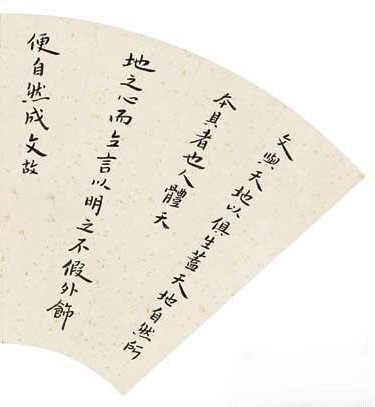 文與天地以俱生蓋天地自然所
本具者也人體天
地之心而立言以明之不假外飾
便自然成文故